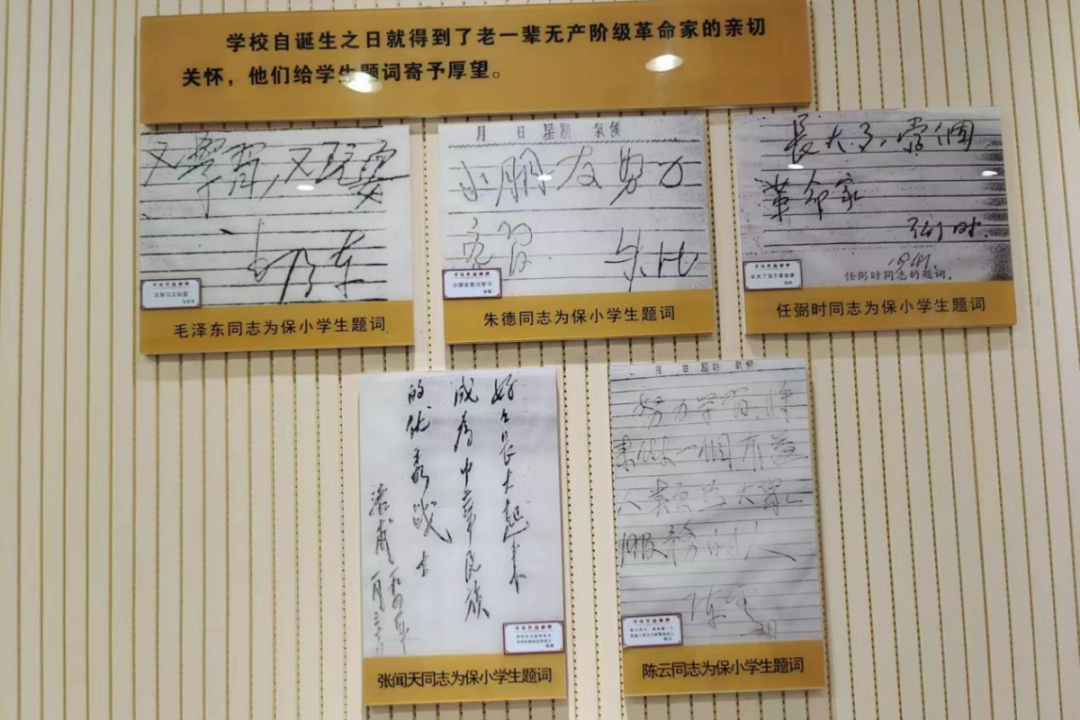 学校自诞生之日就得到了老一辈无产阶级革命家的亲切
关怀，他们给学生题词寄予厚望。
又學習，又玩耍
毛泽东
毛泽东同志为保小学生题词
月 日 星期 气候
小朋友努力
学習 朱德
小朋友努力学习
朱德同志为保小学生题词
長大了，當個
革命家
弼时.
1941.
任弼时同志的题词.
任弼时同志为保小学生题词
好好長大起来
成為中華民族
的优秀战士
洛甫
张闻天同志为保小学生题词
月 日 星期 气候
努力学習，将
来做一個有益
人類
服務的人
陈云
陈云同志为保小学生题词